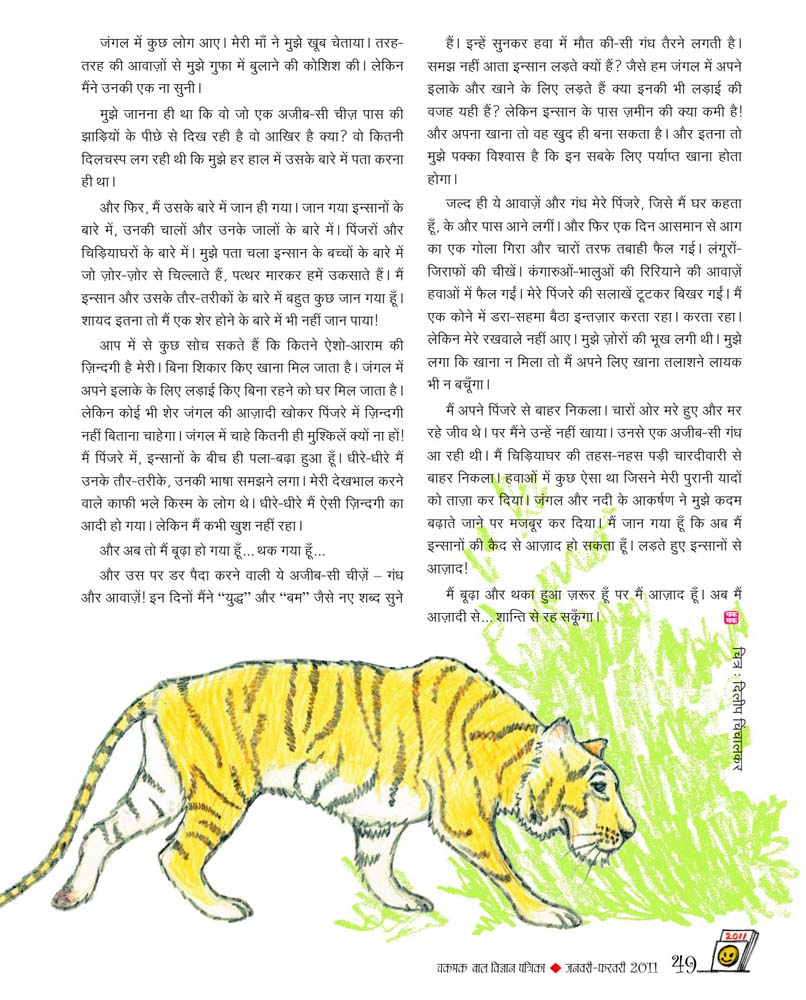 जंगल में कुछ लोग आए। मेरी माँ ने मुझे खूब चेताया। तरह-
तरह की आवाज़ों से मुझे गुफा में बुलाने की कोशिश की। लेकिन
मैंने उनकी एक ना सुनी।
मुझे जानना ही था कि वो जो एक अजीब-सी चीज़ पास की
झाड़ियों के पीछे से दिख रही है वो आखिर है क्या? वो कितनी
दिलचस्प लग रही थी कि मुझे हर हाल में उसके बारे में पता करना
ही था।
और फिर, मैं उसके बारे में जान ही गया। जान गया इन्सानों के
बारे में, उनकी चालों और उनके जालों के बारे में। पिंजरों और
चिड़ियाघरों के बारे में। मुझे पता चला इन्सान के बच्चों के बारे में
जो ज़ोर-ज़ोर से चिल्लाते हैं, पत्थर मारकर हमें उकसाते हैं। मैं
इन्सान और उसके तौर-तरीकों के बारे में बहुत कुछ जान गया हूँ।
शायद इतना तो मैं एक शेर होने के बारे में भी नहीं जान पाया!
आप में से कुछ सोच सकते हैं कि कितने ऐशो-आराम की
ज़िन्दगी है मेरी। बिना शिकार किए खाना मिल जाता है। जंगल में
अपने इलाके के लिए लड़ाई किए बिना रहने को घर मिल जाता है।
लेकिन कोई भी शेर जंगल की आज़ादी खोकर पिंजरे में ज़िन्दगी
नहीं बिताना चाहेगा। जंगल में चाहे कितनी ही मुश्किलें क्यों ना हों!
मैं पिंजरे में, इन्सानों के बीच ही पला-बढ़ा हुआ हूँ। धीरे-धीरे मैं
उनके तौर-तरीके, उनकी भाषा समझने लगा। मेरी देखभाल करने
वाले काफी भले किस्म के लोग थे। धीरे-धीरे मैं ऐसी ज़िन्दगी का
आदी हो गया। लेकिन मैं कभी खुश नहीं रहा।
और अब तो मैं बूढ़ा हो गया हूँ... थक गया हूँ...
और उस पर डर पैदा करने वाली ये अजीब-सी चीज़ें – गंध
और आवाज़ें! इन दिनों मैंने “युद्ध” और “बम” जैसे नए शब्द सुने
हैं। इन्हें सुनकर हवा में मौत की-सी गंध तैरने लगती है।
समझ नहीं आता इन्सान लड़ते क्यों हैं? जैसे हम जंगल में अपने
इलाके और खाने के लिए लड़ते हैं क्या इनकी भी लड़ाई की
वजह यही हैं? लेकिन इन्सान के पास ज़मीन की क्या कमी है!
और अपना खाना तो वह खुद ही बना सकता है। और इतना तो
मुझे पक्का विश्वास है कि इन सबके लिए पर्याप्त खाना होता
होगा।
जल्द ही ये आवाज़ें और गंध मेरे पिंजरे, जिसे मैं घर कहता
हूँ, के और पास आने लगीं। और फिर एक दिन आसमान से आग
का एक गोला गिरा और चारों तरफ तबाही फैल गई। लंगूरों-
जिराफों की चीखें। कंगारुओं-भालुओं की रिरियाने की आवाज़ें
हवाओं में फैल गईं। मेरे पिंजरे की सलाखें टूटकर बिखर गईं। मैं
एक कोने में डरा-सहमा बैठा इन्तज़ार करता रहा। करता रहा।
लेकिन मेरे रखवाले नहीं आए। मुझे ज़ोरों की भूख लगी थी। मुझे
लगा कि खाना न मिला तो मैं अपने लिए खाना तलाशने लायक
भी न बचूँगा।
मैं अपने पिंजरे से बाहर निकला। चारों ओर मरे हुए और मर
रहे जीव थे। पर मैंने उन्हें नहीं खाया। उनसे एक अजीब-सी गंध
आ रही थी। मैं चिड़ियाघर की तहस-नहस पड़ी चारदीवारी से
बाहर निकला। हवाओं में कुछ ऐसा था जिसने मेरी पुरानी यादों
को ताज़ा कर दिया। जंगल और नदी के आकर्षण ने मुझे कदम
बढ़ाते जाने पर मजबूर कर दिया। मैं जान गया हूँ कि अब मैं
इन्सानों की कैद से आज़ाद हो सकता हूँ। लड़ते हुए इन्सानों से
आज़ाद!
मैं बूढ़ा और थका हुआ ज़रूर हूँ पर मैं आज़ाद हूँ। अब मैं
आज़ादी से... शान्ति से रह सकूँगा।
चक
मक
चित्र : दिलीप चिंचालकर
2011
चकमक बाल विज्ञान पत्रिका ◆ जनवरी-फरवरी 2011 49